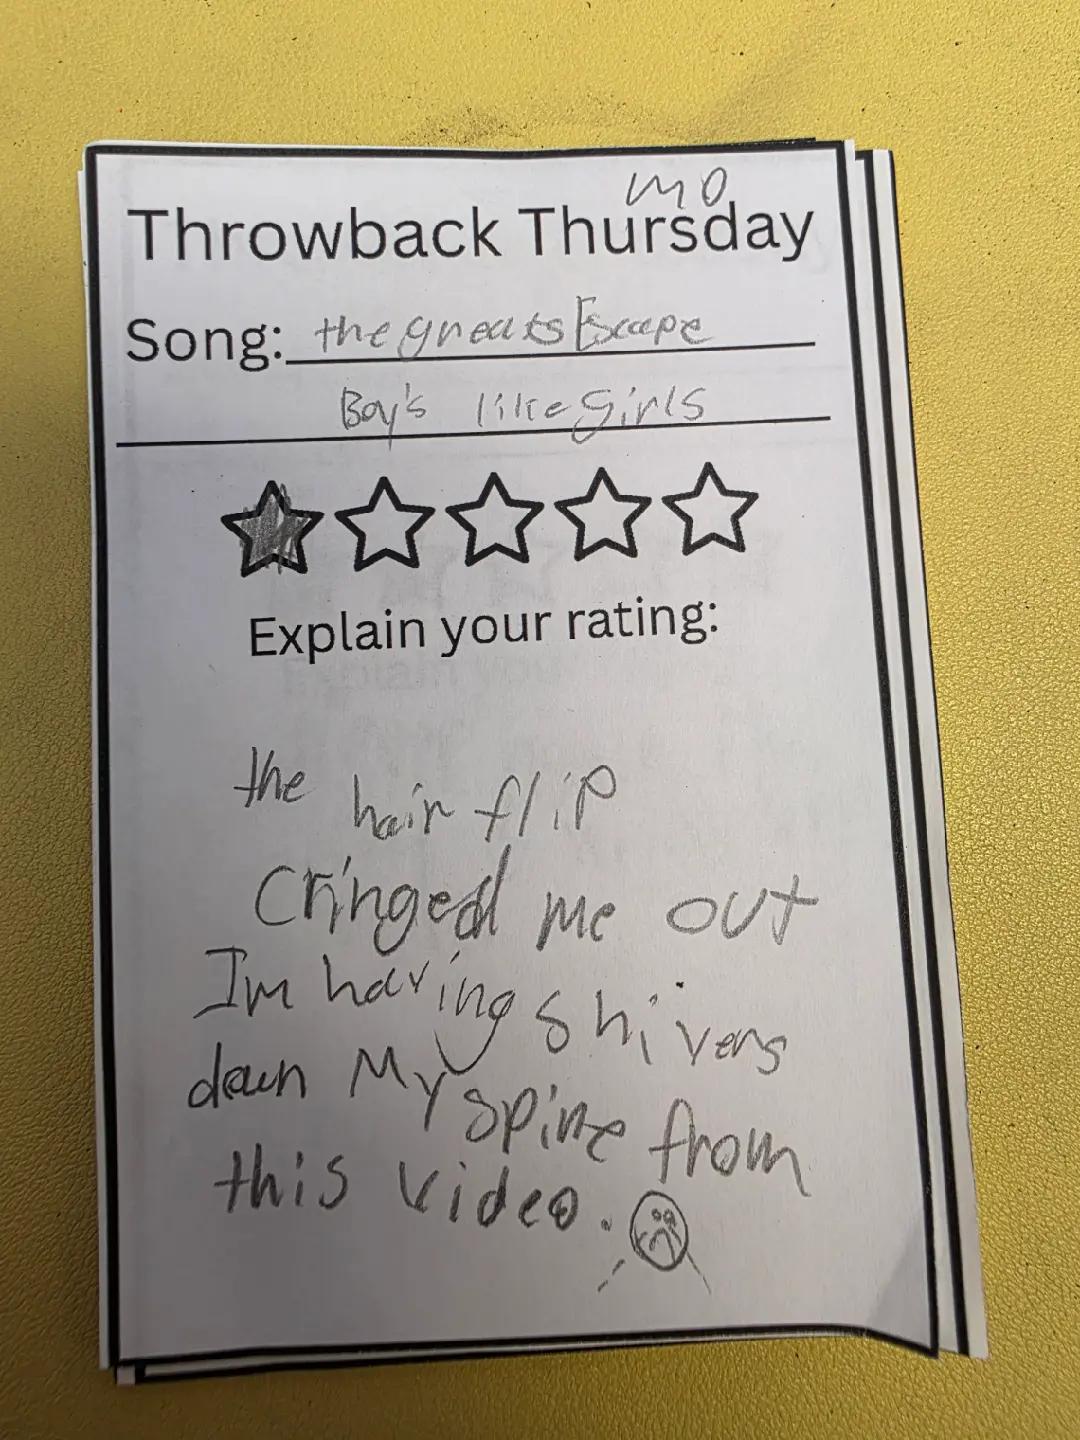 mo
Throwback Thursday
Song: the greats Escape
Boy's like Girls
Explain your rating:
the hair flip
Cringed me out
Im having shivers
down My spine from
this video.